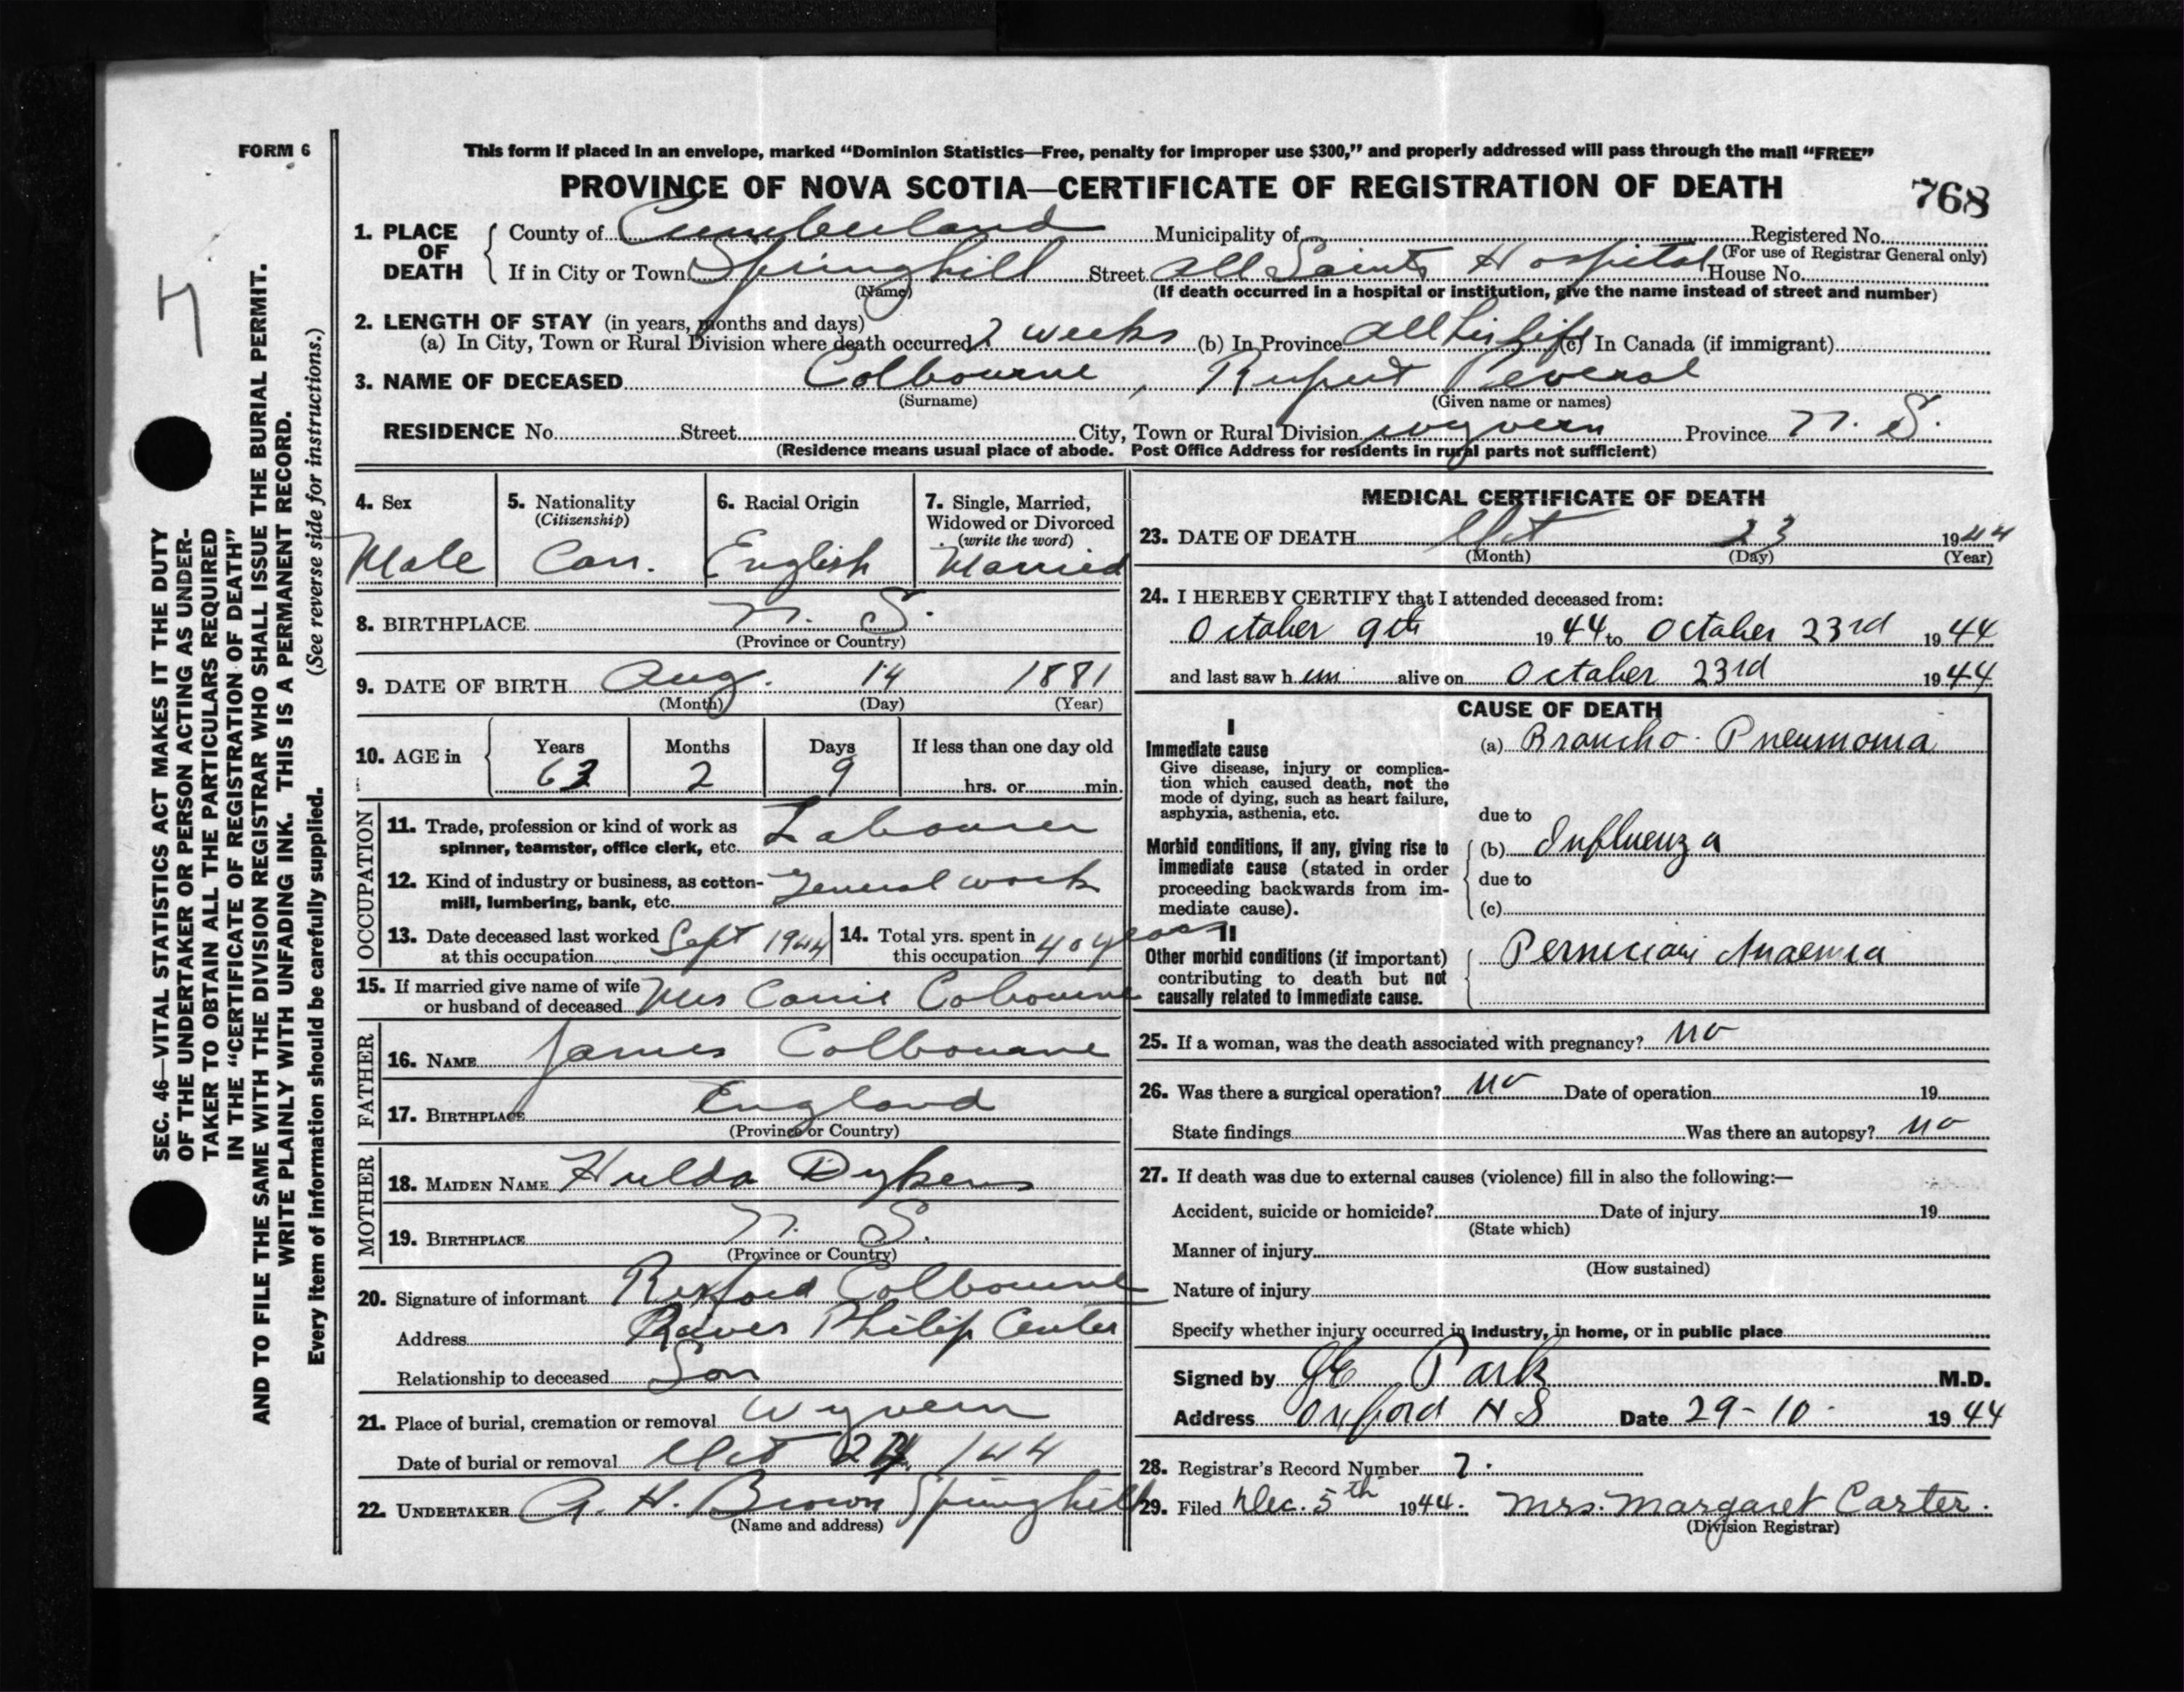 FORM 6
This form if placed in an envelope, marked “Dominion Statistics—Free, penalty for improper use $300,” and properly addressed will pass through the mail “FREE”
PROVINCE OF NOVA SCOTIA—CERTIFICATE OF REGISTRATION OF DEATH
768
1. PLACE OF DEATH
County of Cumberland Municipality of Registered No.
(For use of Registrar General only)
If in City or Town Springhill Street All Saints Hospital House No.
(Name) (If death occurred in a hospital or institution, give the name instead of street and number)
2. LENGTH OF STAY (in years, months and days)
(a) In City, Town or Rural Division where death occurred 2 weeks (b) In Province All his life (c) In Canada (if immigrant)
3. NAME OF DECEASED Colbourne, Rupert Peveral
(Surname) (Given name or names)
RESIDENCE No. Street City, Town or Rural Division Wyvern Province N. S.
(Residence means usual place of abode. Post Office Address for residents in rural parts not sufficient)
4. Sex
Male
5. Nationality
(Citizenship)
Can.
6. Racial Origin
English
7. Single, Married,
Widowed or Divorced
(write the word)
Married
8. BIRTHPLACE N. S.
(Province or Country)
9. DATE OF BIRTH Aug. 14 1881
(Month) (Day) (Year)
10. AGE in
Years Months Days If less than one day old
63 2 9 hrs. or min.
OCCUPATION
11. Trade, profession or kind of work as
spinner, teamster, office clerk, etc. Labourer
12. Kind of industry or business, as cotton-
mill, lumbering, bank, etc. General work
13. Date deceased last worked
at this occupation Sept 1944
14. Total yrs. spent in
this occupation 40 years
15. If married give name of wife
or husband of deceased Mrs Carrie Colbourne
FATHER
16. NAME James Colbourne
17. BIRTHPLACE England
(Province or Country)
MOTHER
18. MAIDEN NAME Hulda Dykens
19. BIRTHPLACE N. S.
(Province or Country)
20. Signature of informant Rexford Colbourne
Address River Philip Center
Relationship to deceased Son
21. Place of burial, cremation or removal Wyvern
Date of burial or removal Oct 24, 144
22. UNDERTAKER A. H. Brown Springhill
(Name and address)
MEDICAL CERTIFICATE OF DEATH
23. DATE OF DEATH Oct 23 1944
(Month) (Day) (Year)
24. I HEREBY CERTIFY that I attended deceased from:
October 9th 1944 to October 23rd 1944
and last saw h im alive on October 23rd 1944
CAUSE OF DEATH
I
Immediate cause
Give disease, injury or complica-
tion which caused death, not the
mode of dying, such as heart failure,
asphyxia, asthenia, etc.
(a) Broncho Pneumonia
due to
Morbid conditions, if any, giving rise to
immediate cause (stated in order
proceeding backwards from im-
mediate cause).
(b) Influenza
due to
(c)
II
Other morbid conditions (if important)
contributing to death but not
causally related to immediate cause.
Pernicious Anaemia
25. If a woman, was the death associated with pregnancy? no
26. Was there a surgical operation? no Date of operation 19
State findings Was there an autopsy? no
27. If death was due to external causes (violence) fill in also the following:—
Accident, suicide or homicide? Date of injury 19
(State which)
Manner of injury
(How sustained)
Nature of injury
Specify whether injury occurred in industry, in home, or in public place
Signed by JE Park M.D.
Address Oxford N S Date 29-10- 1944
28. Registrar's Record Number 7.
29. Filed Dec. 5th 1944. Mrs. Margaret Carter.
(Division Registrar)
SEC. 46—VITAL STATISTICS ACT MAKES IT THE DUTY
OF THE UNDERTAKER OR PERSON ACTING AS UNDER-
TAKER TO OBTAIN ALL THE PARTICULARS REQUIRED
IN THE “CERTIFICATE OF REGISTRATION OF DEATH”
AND TO FILE THE SAME WITH THE DIVISION REGISTRAR WHO SHALL ISSUE THE BURIAL PERMIT.
WRITE PLAINLY WITH UNFADING INK. THIS IS A PERMANENT RECORD.
Every item of information should be carefully supplied. (See reverse side for instructions.)